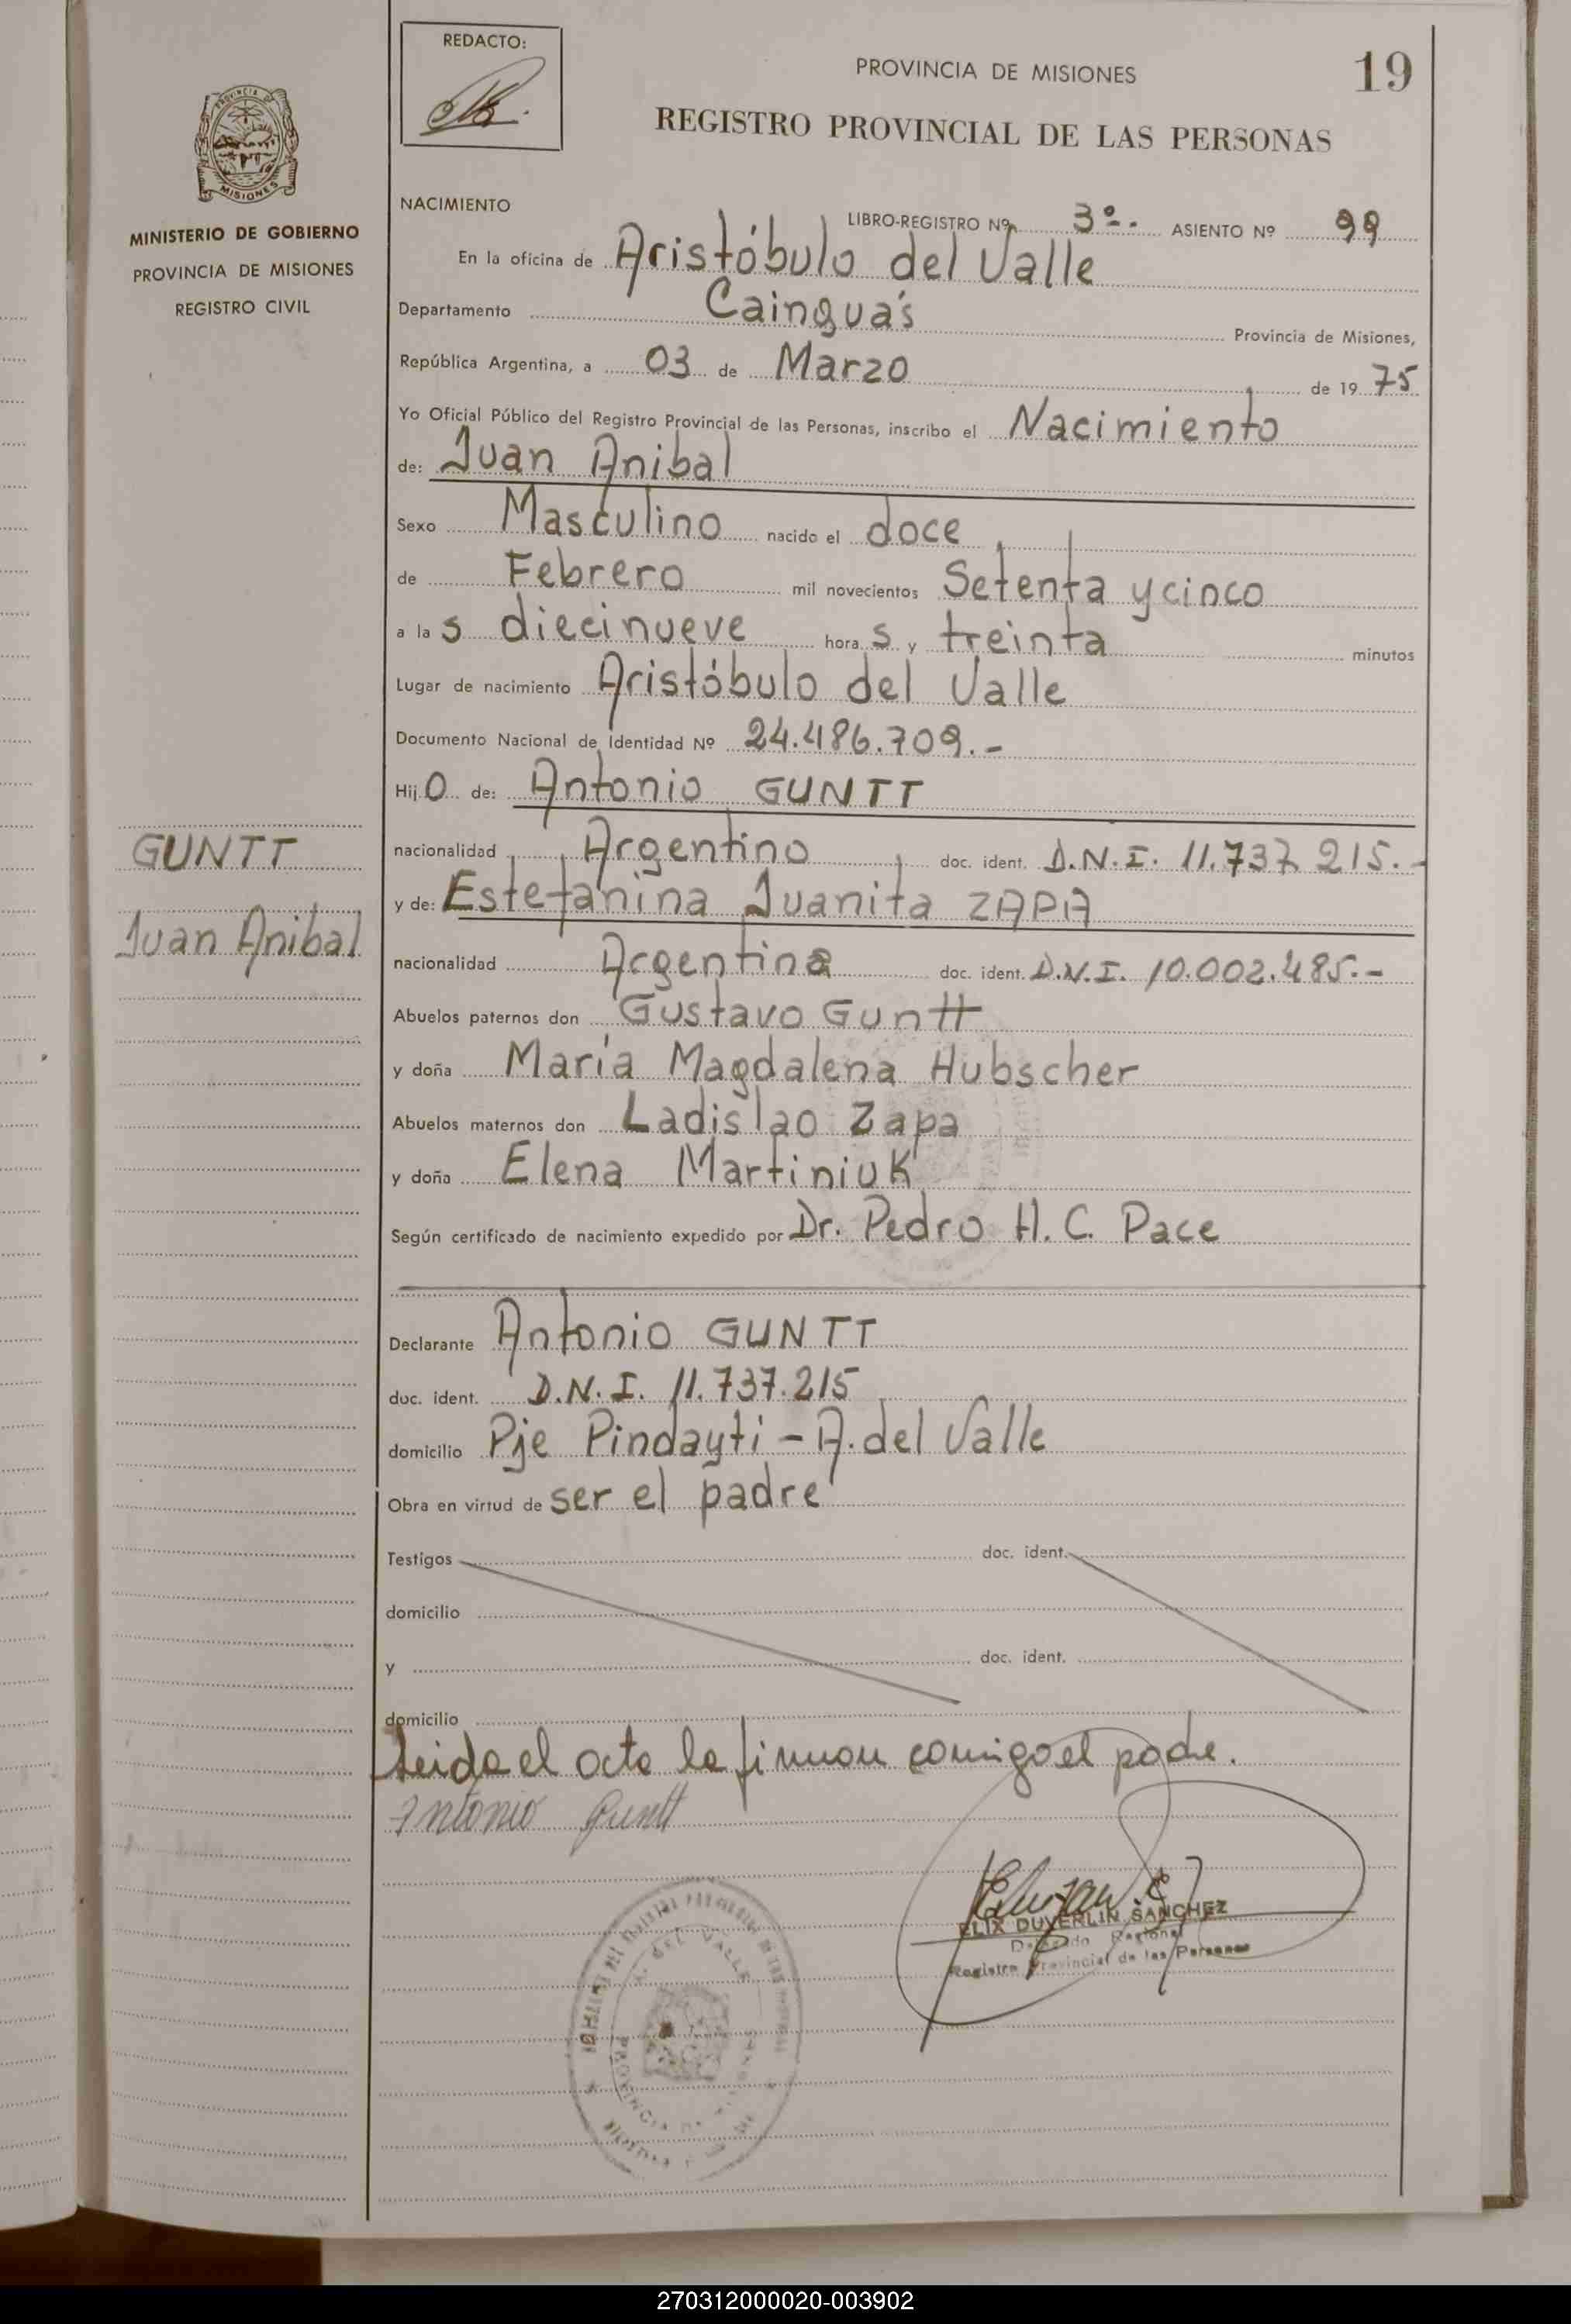 REDACTO:
PROVINCIA DE MISIONES
19
REGISTRO PROVINCIAL DE LAS PERSONAS
PROVINCIA DE
MISIONES
MINISTERIO DE GOBIERNO
PROVINCIA DE MISIONES
REGISTRO CIVIL
GUNTT
Juan Anibal
NACIMIENTO
LIBRO-REGISTRO Nº 3º.- ASIENTO Nº 99
En la oficina de Aristóbulo del Valle
Departamento Cainguás Provincia de Misiones,
República Argentina, a 03 de Marzo de 19 75
Yo Oficial Público del Registro Provincial de las Personas, inscribo el Nacimiento
de: Juan Anibal
Sexo Masculino nacido el doce
de Febrero mil novecientos Setenta y cinco
a la s diecinueve hora s y treinta minutos
Lugar de nacimiento Aristóbulo del Valle
Documento Nacional de Identidad Nº 24.486.709.-
Hij o de: Antonio GUNTT
nacionalidad Argentino doc. ident. D.N.I. 11.737.215.-
y de: Estefanina Juanita ZAPA
nacionalidad Argentina doc. ident. D.N.I. 10.002.485.-
Abuelos paternos don Gustavo Guntt
y doña María Magdalena Hubscher
Abuelos maternos don Ladislao Zapa
y doña Elena Martiniuk
Según certificado de nacimiento expedido por Dr. Pedro H. C. Pace
Declarante Antonio GUNTT
doc. ident. D.N.I. 11.737.215
domicilio Pje Pindayti - A. del Valle
Obra en virtud de ser el padre
Testigos doc. ident.
domicilio
y doc. ident.
domicilio
Leida el acta la firman conmigo el padre.
Antonio Guntt
ELIX DUVERLIN SANCHEZ
Delegado Regional
Registro Provincial de las Personas
A. DEL VALLE
PROVINCIA DE MISIONES
270312000020-003902